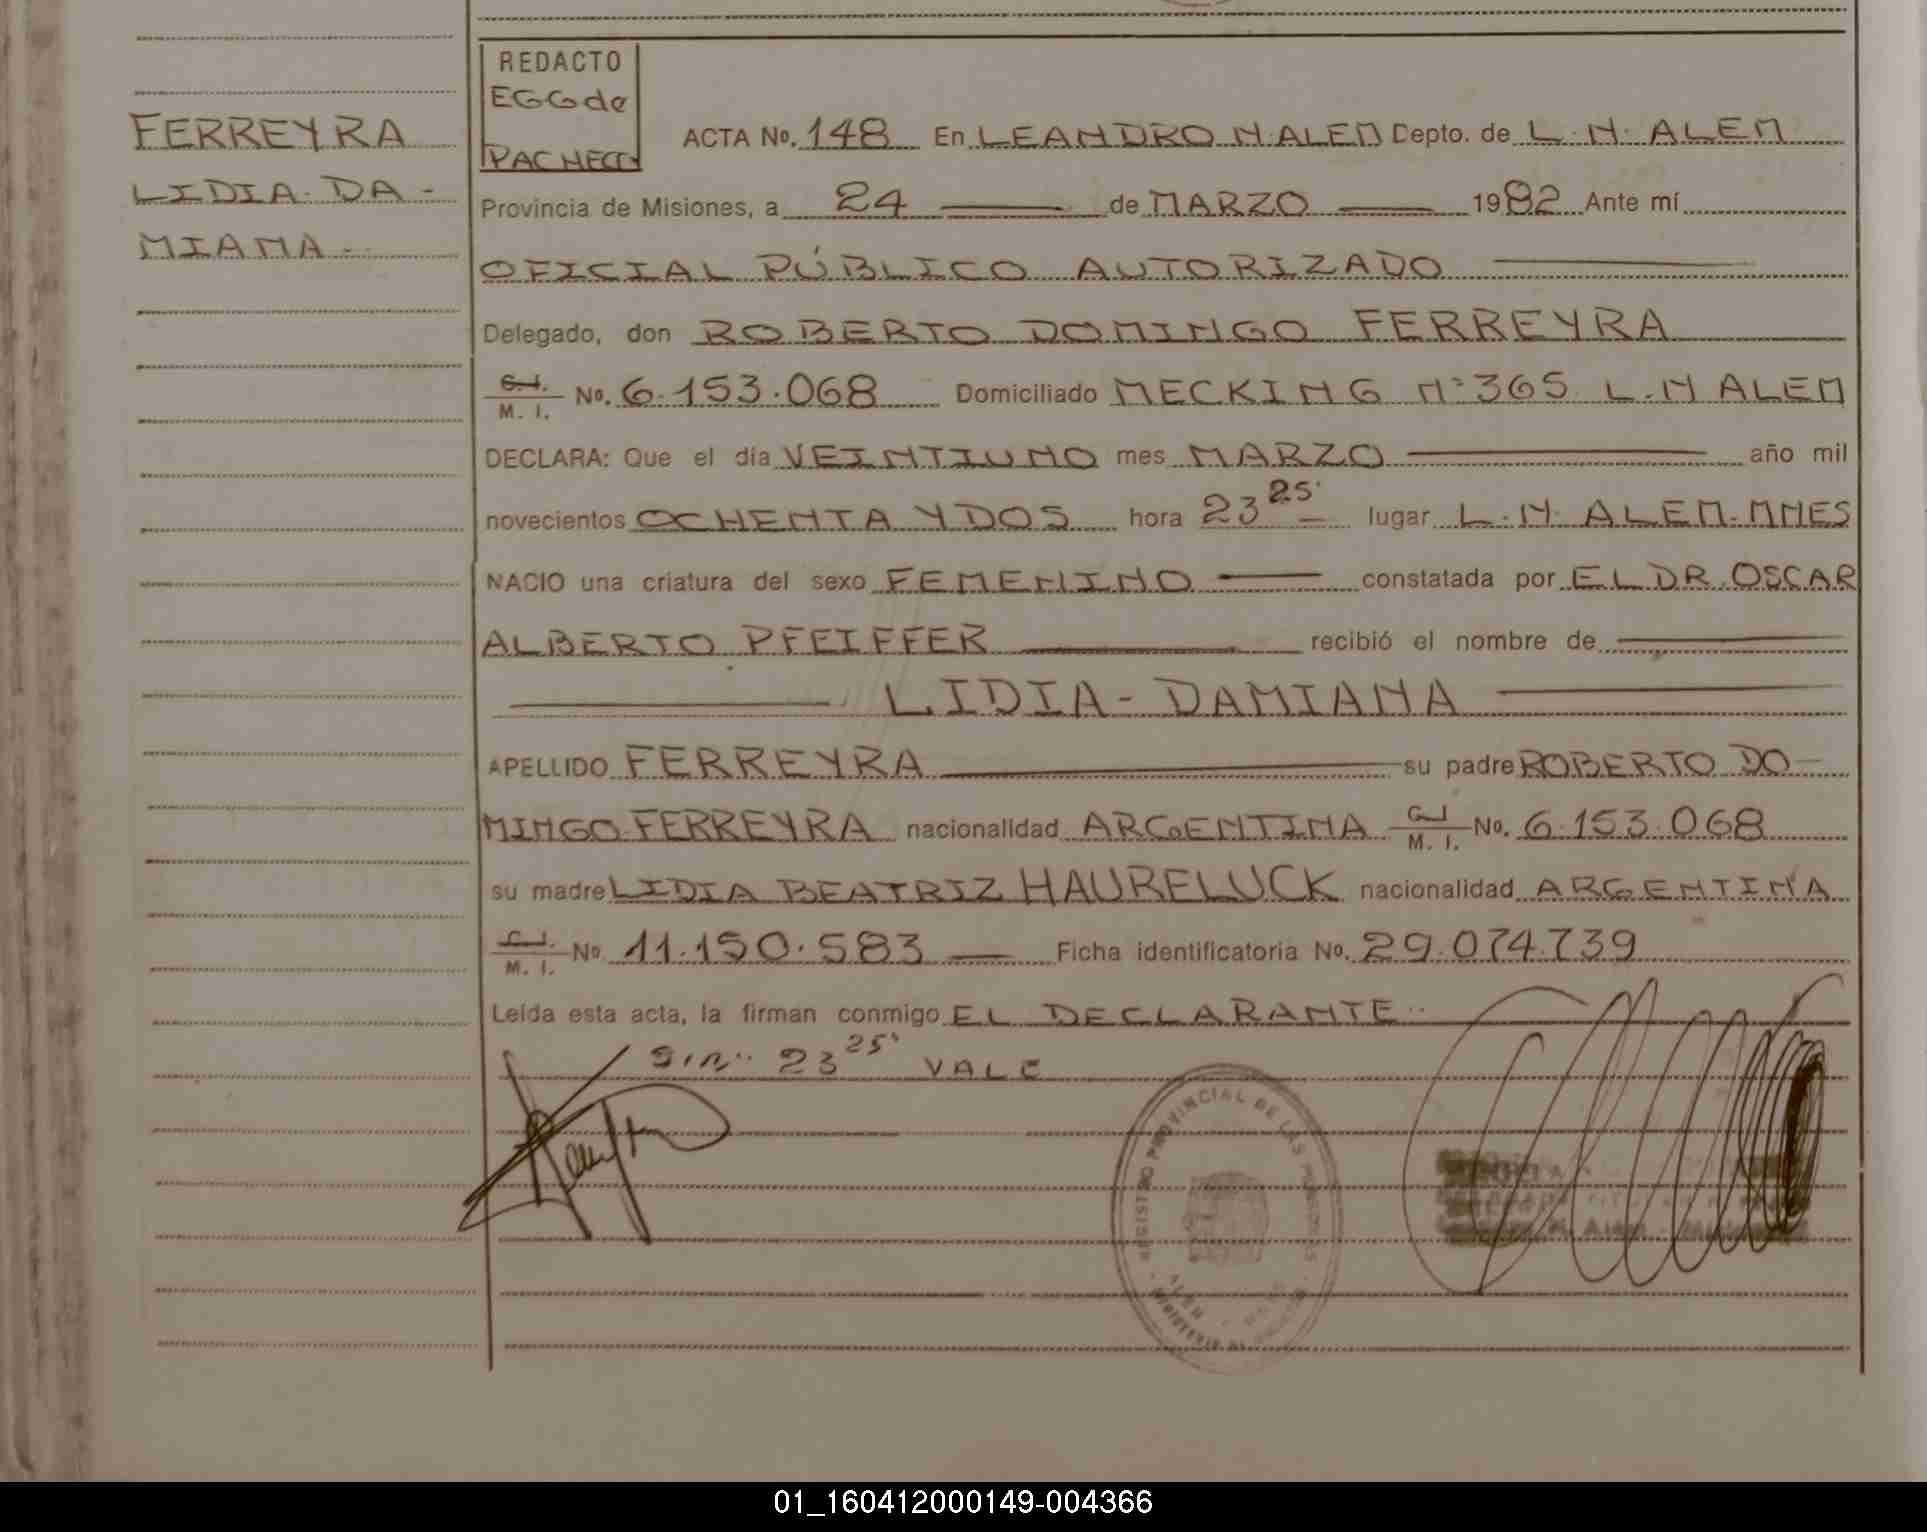 REDACTO
EGG de
PACHECO
FERREYRA
LIDIA DA-
MIANA
ACTA No. 148 En LEANDRO N. ALEM Depto. de L. N. ALEM
Provincia de Misiones, a 24 de MARZO 1982 Ante mí
OFICIAL PÚBLICO AUTORIZADO
Delegado, don ROBERTO DOMINGO FERREYRA
C.I. M. I. No. 6.153.068 Domiciliado MECKING Nº 365 L.N ALEM
DECLARA: Que el día VEINTIUNO mes MARZO año mil
novecientos OCHENTA Y DOS hora 23 25' lugar L. N. ALEM. MNES
NACIO una criatura del sexo FEMENINO constatada por EL DR. OSCAR
ALBERTO PFEIFFER recibió el nombre de
LIDIA - DAMIANA
APELLIDO FERREYRA su padre ROBERTO DO-
MINGO FERREYRA nacionalidad ARGENTINA C.I. M. I. No. 6.153.068
su madre LIDIA BEATRIZ HAURELUCK nacionalidad ARGENTINA
C.I. M. I. No. 11.150.583 Ficha identificatoria No. 29.074.739
Leída esta acta, la firman conmigo EL DECLARANTE..
23 25' VALE
REGISTRO PROVINCIAL DE LAS PERSONAS
01_160412000149-004366